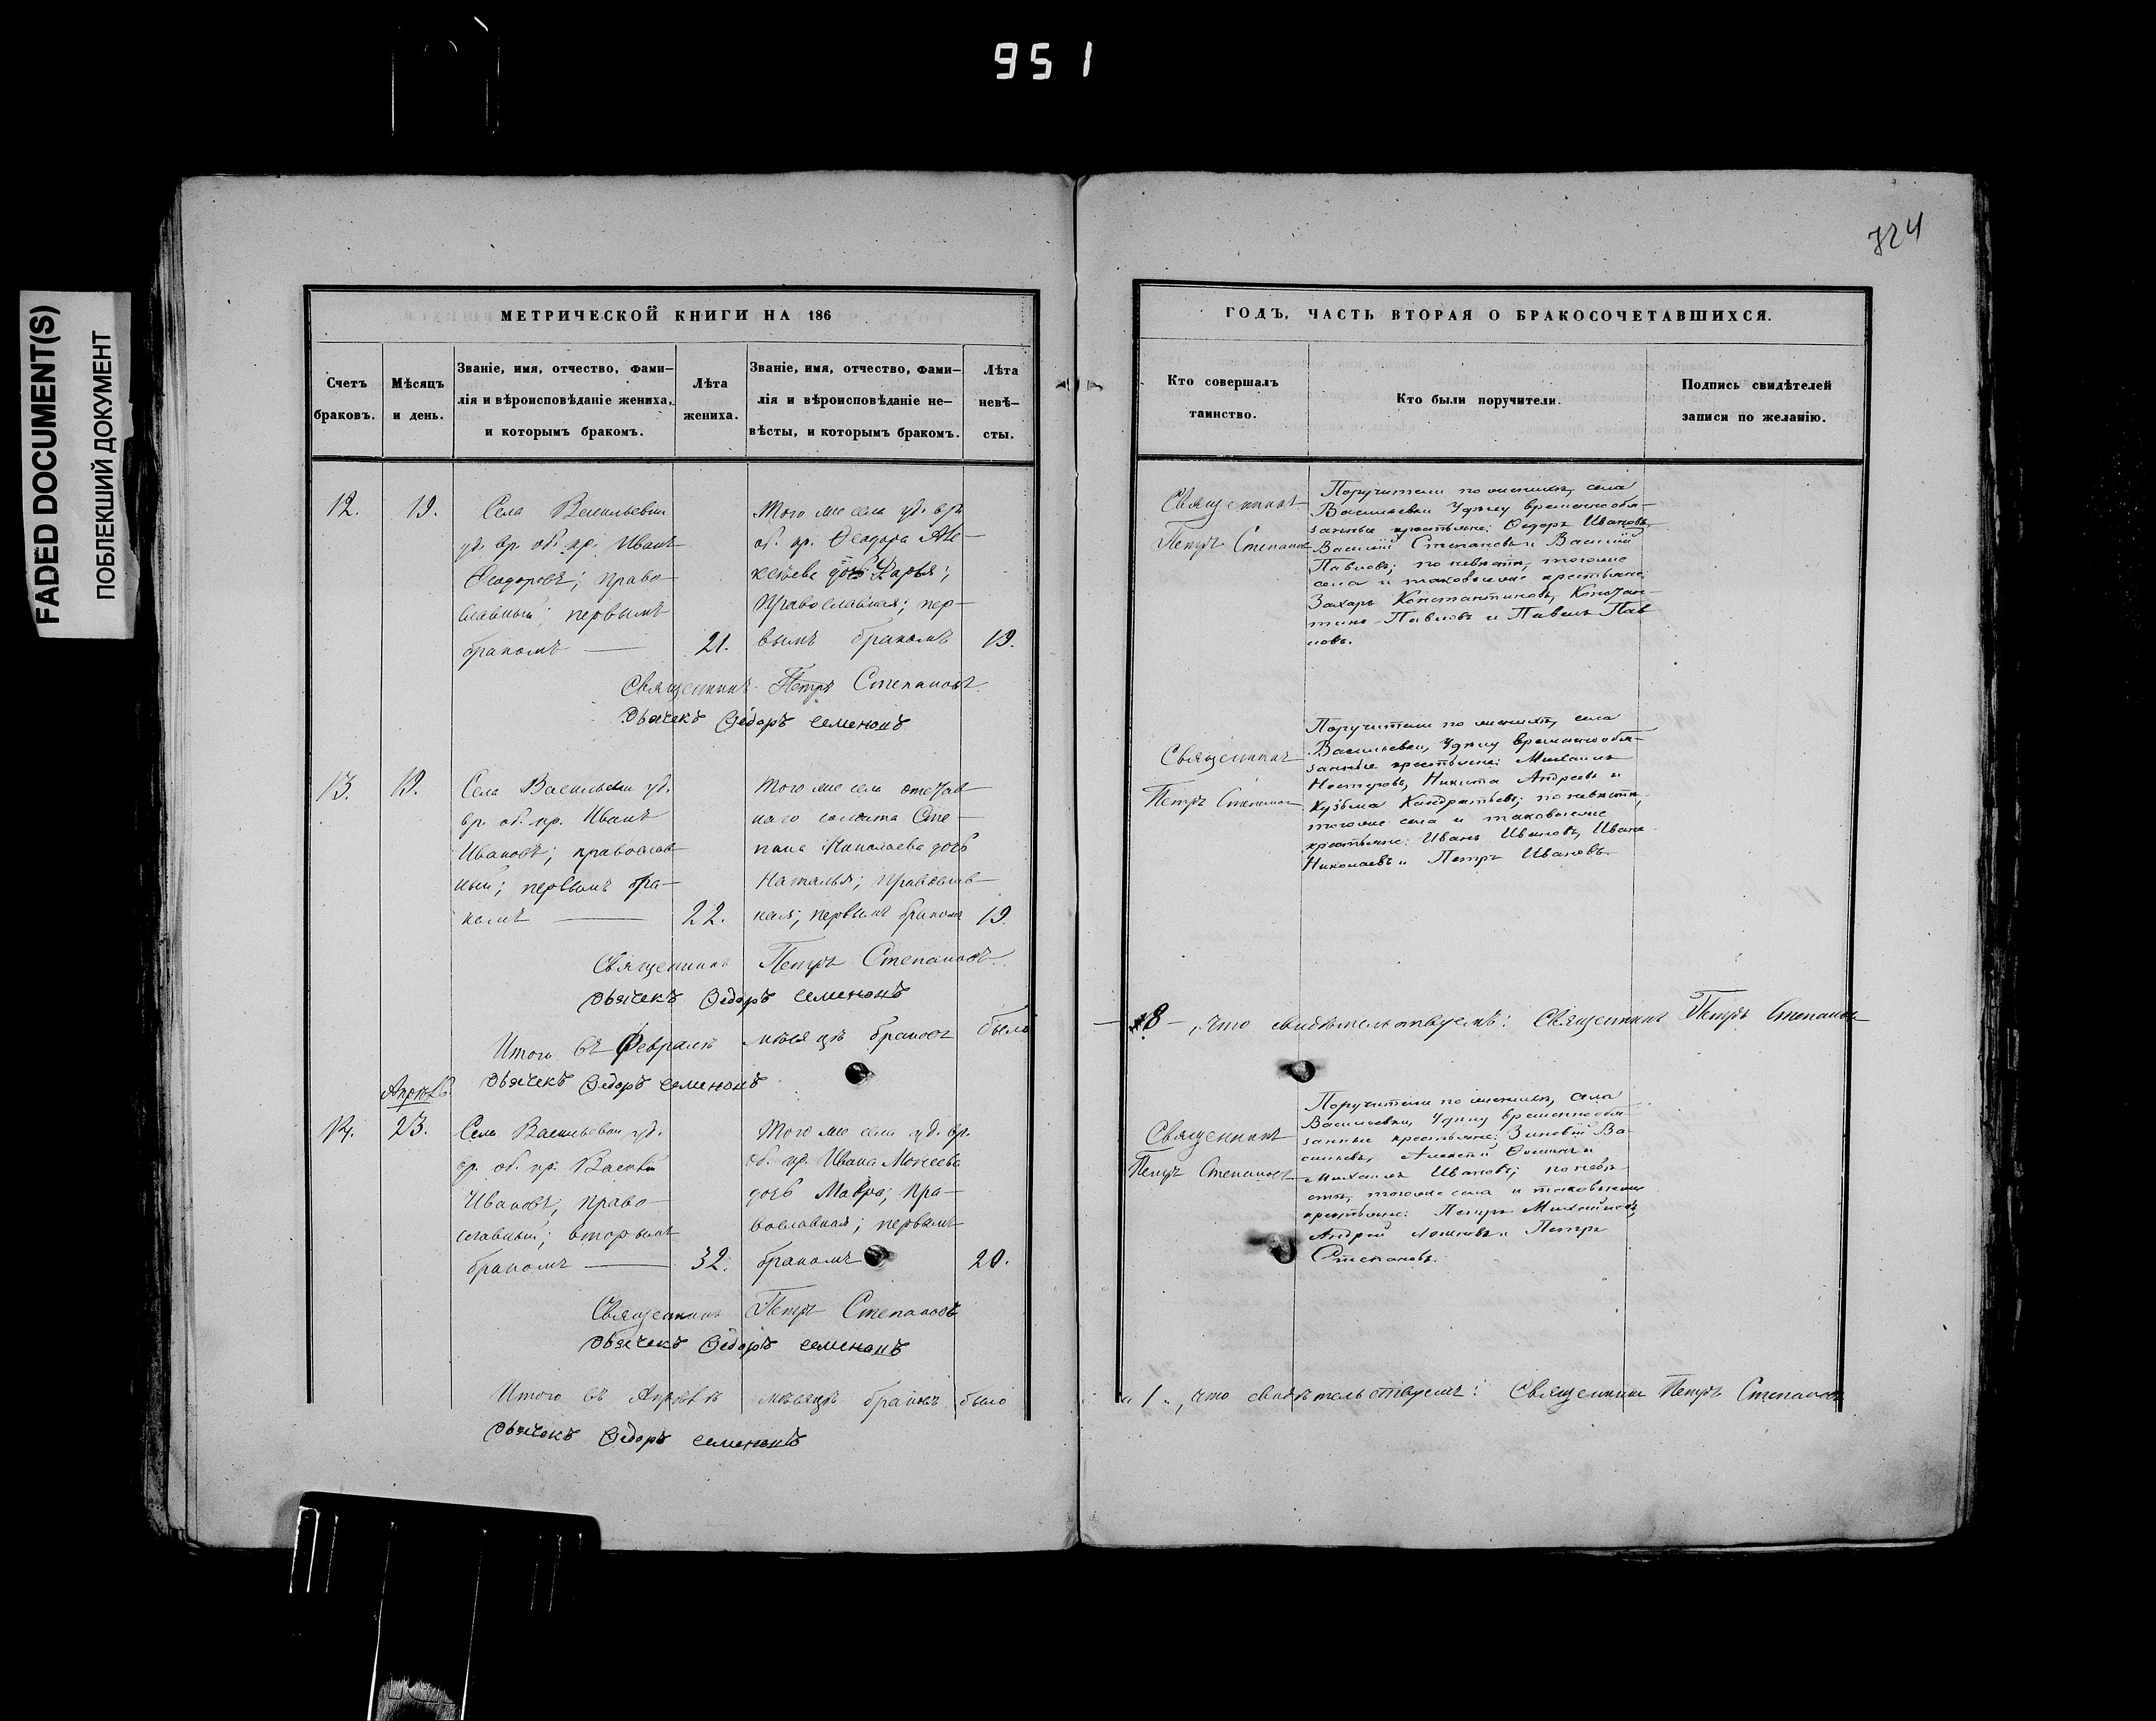 951
FADED DOCUMENT(S)
ПОБЛЕКШИЙ ДОКУМЕНТ
МЕТРИЧЕСКОЙ КНИГИ НА 186
Счетъ браковъ.
Мѣсяцъ и день.
Званіе, имя, отчество, фами-
лія и вѣроисповѣданіе жениха,
и которымъ бракомъ.
Лѣта жениха.
Званіе, имя, отчество, фами-
лія и вѣроисповѣданіе не-
вѣсты, и которымъ бракомъ.
Лѣта невѣ-
сты.
12.
19.
Села Васильевки
уд. вр. об. кр. Иванъ
Ѳеодоровъ; право
славный; первымъ
бракомъ —
21.
Того же села уд. вр.
об. кр. Ѳеодора Але-
ксѣева дочь Дарья;
Православная; пер-
вымъ бракомъ
19.
Священникъ Петръ Степановъ
Дьячекъ Ѳедоръ Семеновъ
13.
19.
Села Васильевки уд.
вр. об. кр. Иванъ
Ивановъ; православ
ный; первымъ бра-
комъ —
22.
Того же села отстав
наго солдата Сте-
пана Николаева дочь
Наталья; православ-
ная; первымъ бракомъ
19.
Священникъ Петръ Степановъ
Дьячекъ Ѳедоръ Семеновъ
Итого въ Февралѣ мѣсяцѣ браковъ было
Дьячекъ Ѳедоръ Семеновъ
14.
23.
Села Васильевки уд.
вр. об. кр. Василій
Ивановъ; право
славный; вторымъ
бракомъ —
32.
Того же села уд. вр.
об. кр. Ивана Моисеева
дочь Мавра; пра-
вославная; первымъ
бракомъ
20.
Священникъ Петръ Степановъ
Дьячекъ Ѳедоръ Семеновъ
Итого въ Апрѣлѣ мѣсяцѣ браковъ было
Дьячекъ Ѳедоръ Семеновъ
724
ГОДЪ, ЧАСТЬ ВТОРАЯ О БРАКОСОЧЕТАВШИХСЯ.
Кто совершалъ
таинство.
Кто были поручители.
Подпись свидѣтелей
записи по желанію.
Священникъ
Петръ Степановъ
Поручители по женихѣ, села
Васильевки Удѣлу временнообя-
занные крестьяне: Ѳедоръ Ивановъ,
Василій Степановъ и Василій
Павловъ; по невѣстѣ, тогоже
села и таковыеже крестьяне:
Захаръ Константиновъ, Констан-
тинъ Павловъ и Павелъ Пав
ловъ.
Священникъ
Петръ Степановъ
Поручители по женихѣ, села
Васильевки, Удѣлу временнообя-
занные крестьяне: Михаилъ
Нестеровъ, Никита Андреевъ и
Кузьма Кондратьевъ; по невѣстѣ,
тогоже села и таковыеже
крестьяне: Иванъ Ивановъ, Иванъ
Николаевъ и Петръ Ивановъ.
8 —, что свидѣтельствуемъ: Священникъ Петръ Степановъ
Священникъ
Петръ Степановъ
Поручители по женихѣ, села
Васильевки, Удѣлу временнообя-
занные крестьяне: Зиновій Ва-
сильевъ, Алексѣй и
Михаилъ Ивановъ; по невѣ-
стѣ, тогоже села и таковыеже
крестьяне: Петръ Михайловъ,
Андрей и Петръ
Степановъ.
" 1 ", что свидѣтельствуемъ: Священникъ Петръ Степановъ